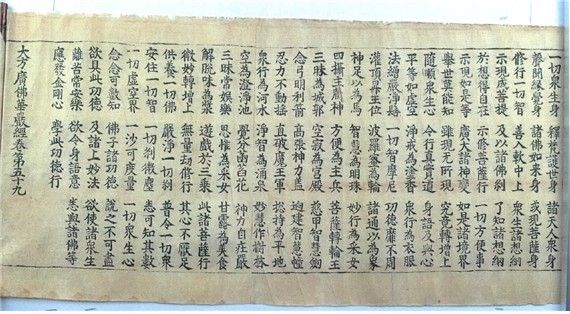 一切衆生身 釋梵護世身 諸天人衆身
聲聞緣覺身 諸佛如來身 或現菩薩身
修行一切智 善入軟中上 衆生諸想網
示現成菩提 及以諸佛剎 了知諸想網
於想得自在 示修菩薩行 一切方便事
示現如是等 廣大諸神變 如是諸境界
舉世莫能知 雖現無所現 究竟轉增上
隨順衆生心 令行真實道 身語及與心
平等如虛空 淨戒為塗香 衆行為衣服
法繒嚴淨髻 一切智摩尼 功德靡不周
灌頂昇王位 波羅蜜為輪 諸通以為象
神足以為馬 智慧為明珠 妙行為采女
四攝主藏神 方便為主兵 菩薩轉輪王
三昧為城郭 空寂為宮殿 慈甲智慧劍
念弓明利箭 高張神力蓋 迥建智慧幢
忍力不動搖 直破魔王軍 揔持為平地
衆行為河水 淨智為涌泉 妙慧作樹林
空為澄淨池 覺分菡萏花 神力自莊嚴
三昧常娛樂 思惟為采女 甘露為美食
解脫味為漿 遊戲於三乘 此諸菩薩行
微妙轉增上 無量劫修行 其心不厭足
供養一切佛 嚴淨一切剎 普令一切衆
安住一切智 一切剎微塵 悉可知其數
一切虛空界 一沙可度量 一切衆生心
念念可數知 佛子諸功德 說之不可盡
欲具此功德 及諸上妙法 欲使諸衆生
離苦常安樂 欲令身語意 悉與諸佛等
應發金剛心 學此功德行
大方廣佛華嚴經卷第五十九